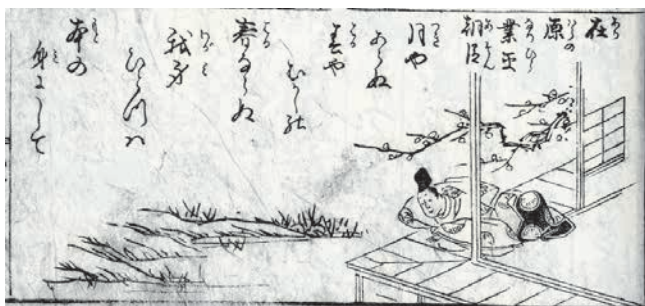 在原業平朝臣
月や
あらぬ
春や
むかしの
春ならぬ
我身
ひとつハ
本の
身にして